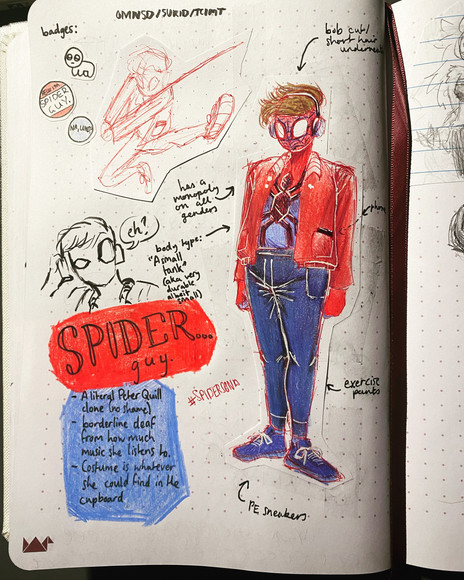 OMNSD/SUKID/TCIMT
badges:
ua
SPIDER
GUY.
bob cut/
short hair
underneath
has a
monopoly
on all
genders
phone
eh?
body type:
"A small
tank"
(aka very
durable
albeit
small)
SPIDER...
guy.
#SPIDERSONA
- A literal Peter Quill
clone (no shame)
- borderline deaf
from how much
music she listens to.
- Costume is whatever
she could find in the
cupboard
exercise
pants
PE sneakers